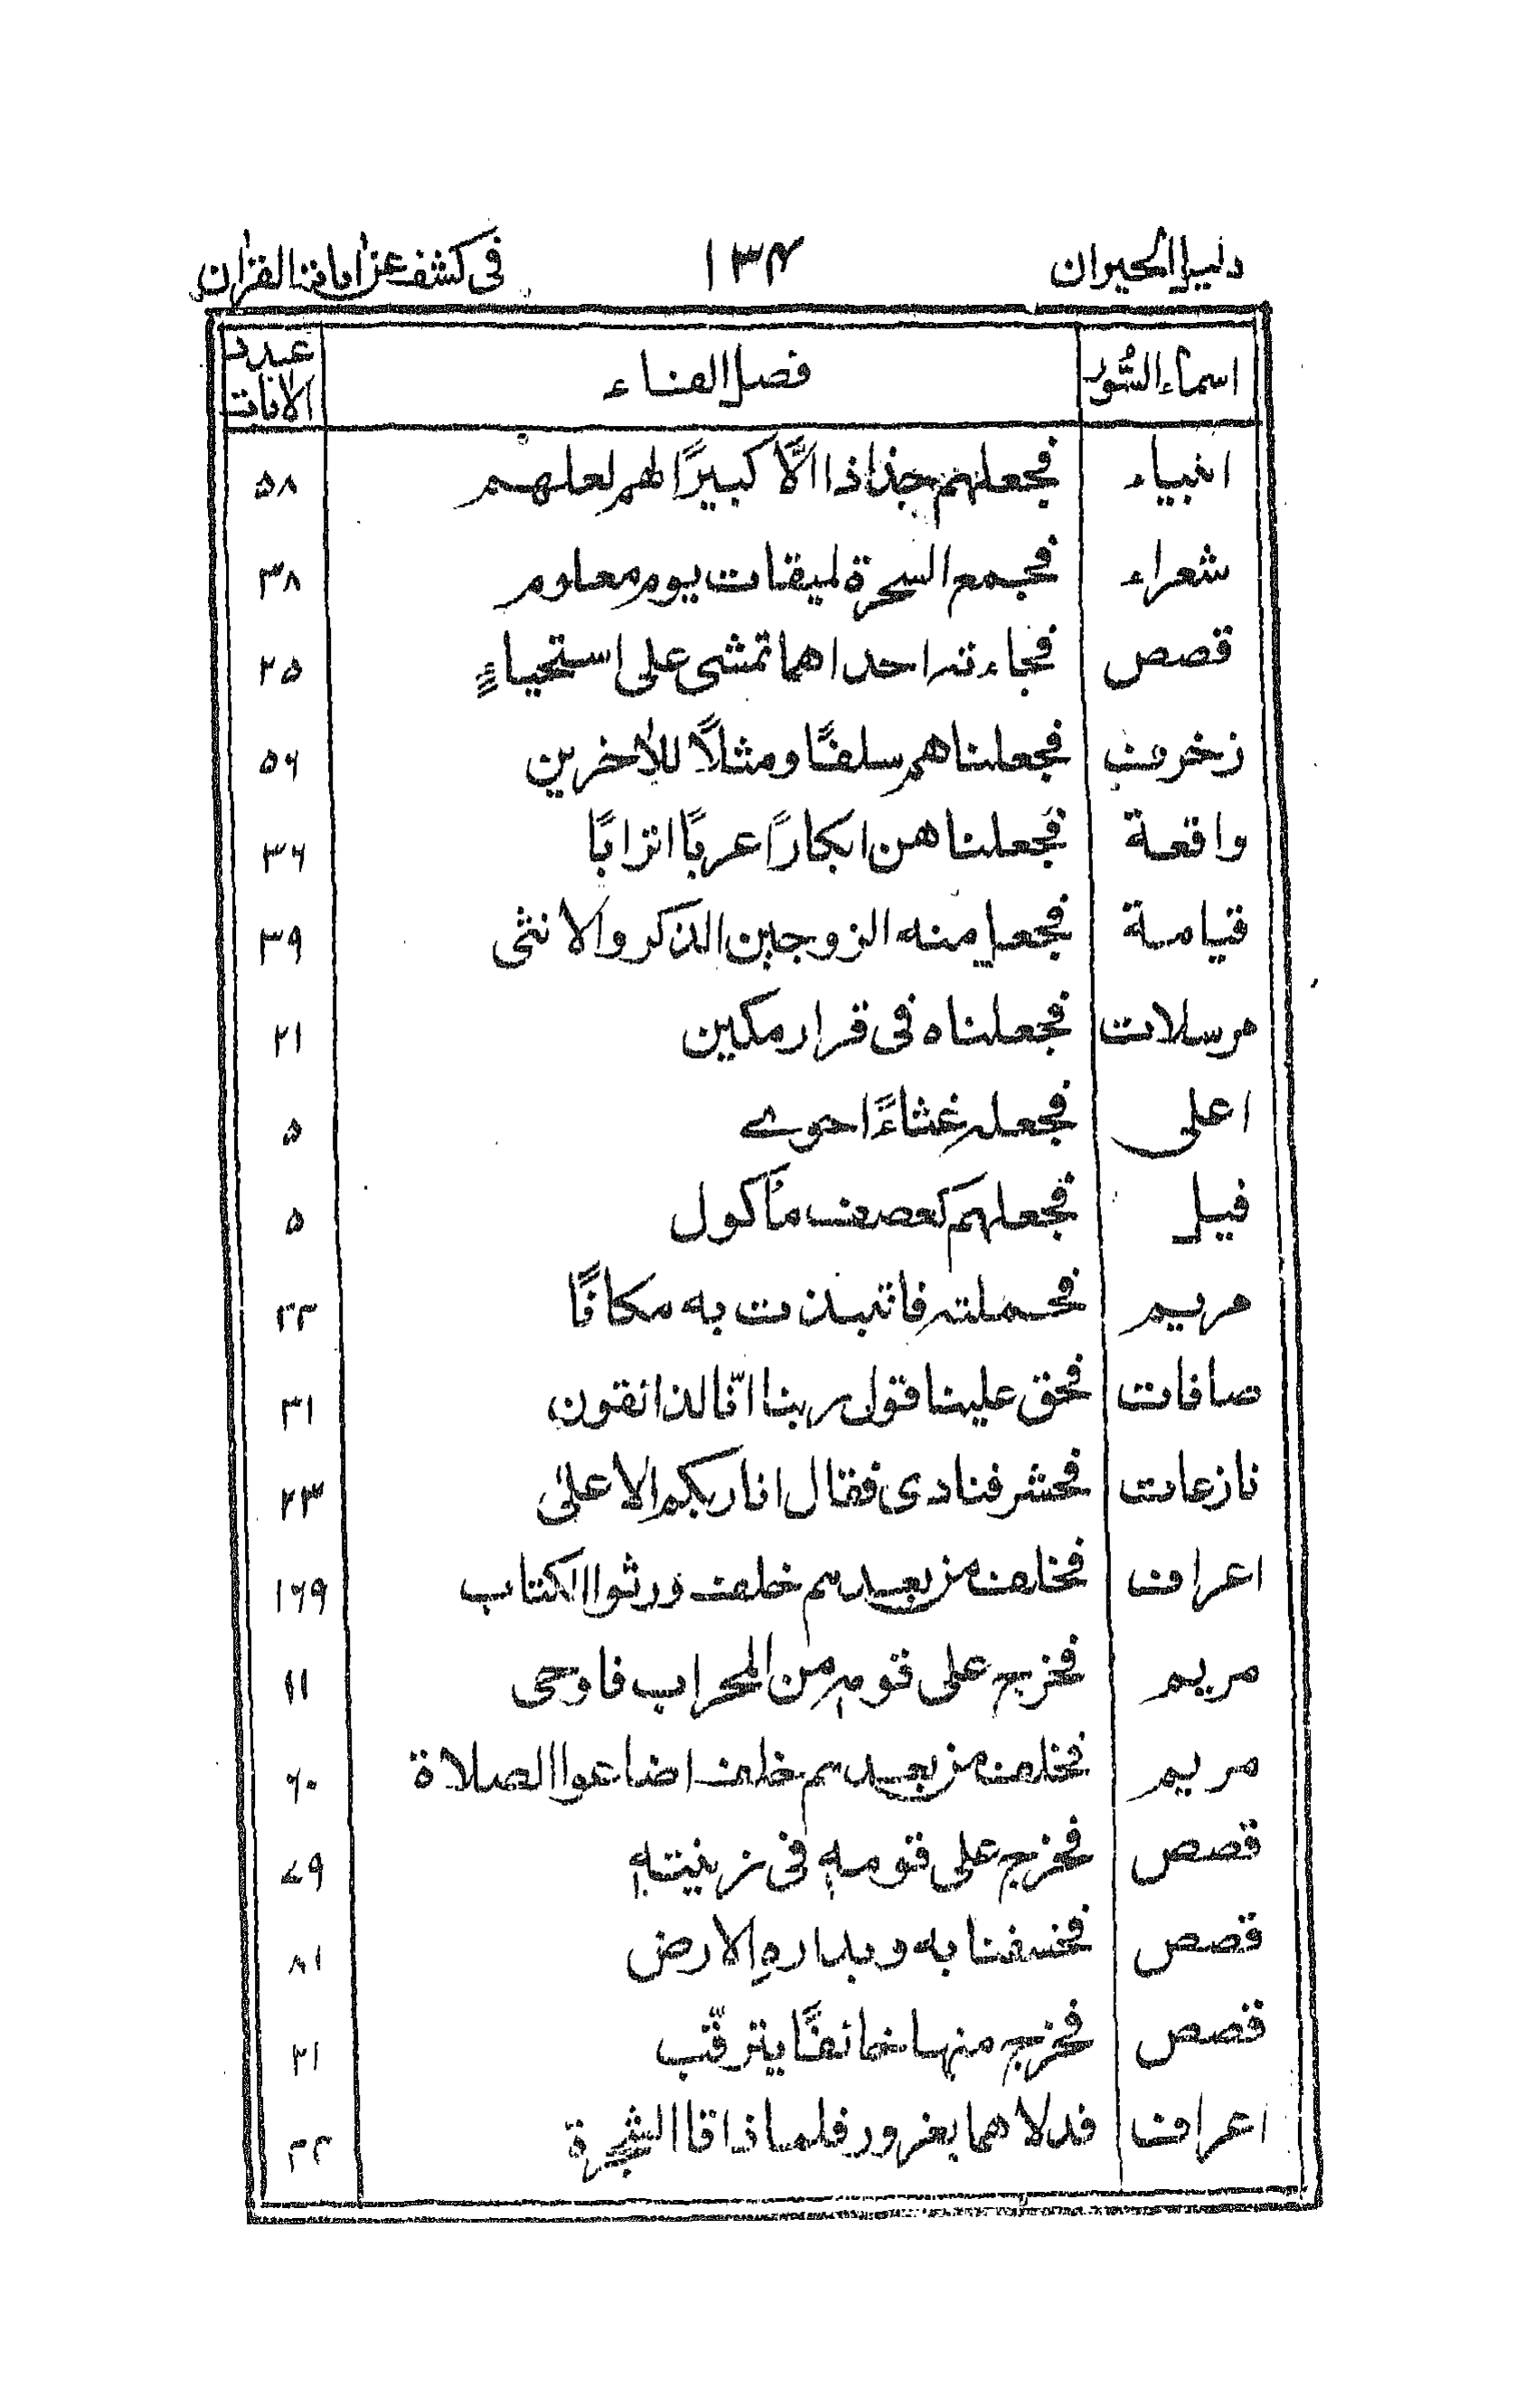 دليل الحيران ١٣٤ فى كشف عن اٰيات القراٰن
اسماء السُّور فصل الفاء عدد الاٰيات
انبياء فجعلهم جذاذا الَّا كبيرًا لهم لعلهم ۵۸
شعراء فجمع السحرة لميقات يوم معلوم ۳۸
قصص فجاءته احداهما تمشى على استحياءٍ ۲۵
زخرف فجعلناهم سلفًا ومثلًا للاٰخرين ۵۶
واقعة فجعلناهن ابكارًا عربًا اترابًا ۳۶
قيامة فجعل منه الزوجين الذكر والانثى ۳۹
مرسلات فجعلناه فى قرار مكين ۲۱
اعلى فجعله غثاءً احوى ۵
فيل فجعلهم كعصف مأكول ۵
مريم فحملته فانتبذت به مكانًا ۲۲
صافات فحق علينا قول ربنا انّا لذائقون ۳۱
نازعات فحشر فنادى فقال انا ربكم الاعلىٰ ۲۳
اعراف فخلف من بعدهم خلف ورثوا الكتاب ۱۶۹
مريم فخرج على قومه من المحراب فاوحى ۱۱
مريم فخلف من بعدهم خلف اضاعوا الصلاة ۶۰
قصص فخرج على قومهٖ فى زينتهٖ ۷۹
قصص فخسفنا به وبدارهِ الارض ۸۱
قصص فخرج منها خائفًا يترقّب ۲۱
اعراف فدلاهما بغرور فلما ذاقا الشجرة ۲۲